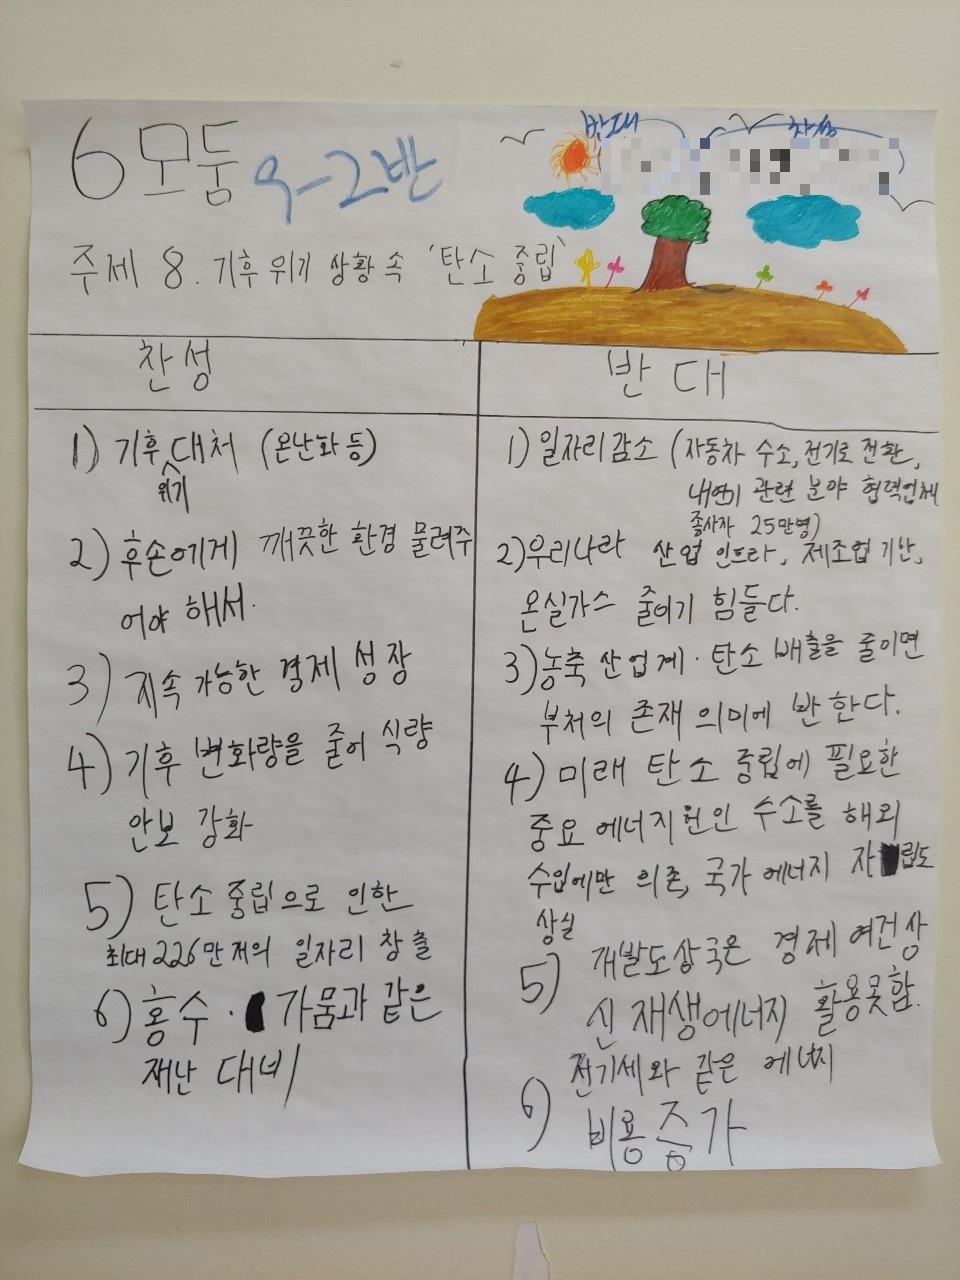 6모둠 우-2반
반대 찬성
주제 8. 기후 위기 상황 속 '탄소 중립'
찬성
1) 기후위기 대처 (온난화 등)
2) 후손에게 깨끗한 환경 물려주
어야 해서.
3) 지속 가능한 경제 성장
4) 기후 변화량을 줄여 식량
안보 강화
5) 탄소 중립으로 인한
최대 226만 저의 일자리 창출
6) 홍수· 가뭄과 같은
재난 대비
반대
1) 일자리 감소 (자동차 수소, 전기로 전환,
내연기 관련 분야 협력업체
종사자 25만명)
2) 우리나라 산업 인프라, 제조업 기반,
온실가스 줄이기 힘들다.
3) 농축 산업계· 탄소 배출을 줄이면
부처의 존재 의미에 반한다.
4) 미래 탄소 중립에 필요한
중요 에너지원인 수소를 해외
수입에만 의존, 국가 에너지 자립도
상실
5) 개발도상국은 경제 여건상
신 재생에너지 활용못함.
6) 전기세와 같은 에너지
비용 증가